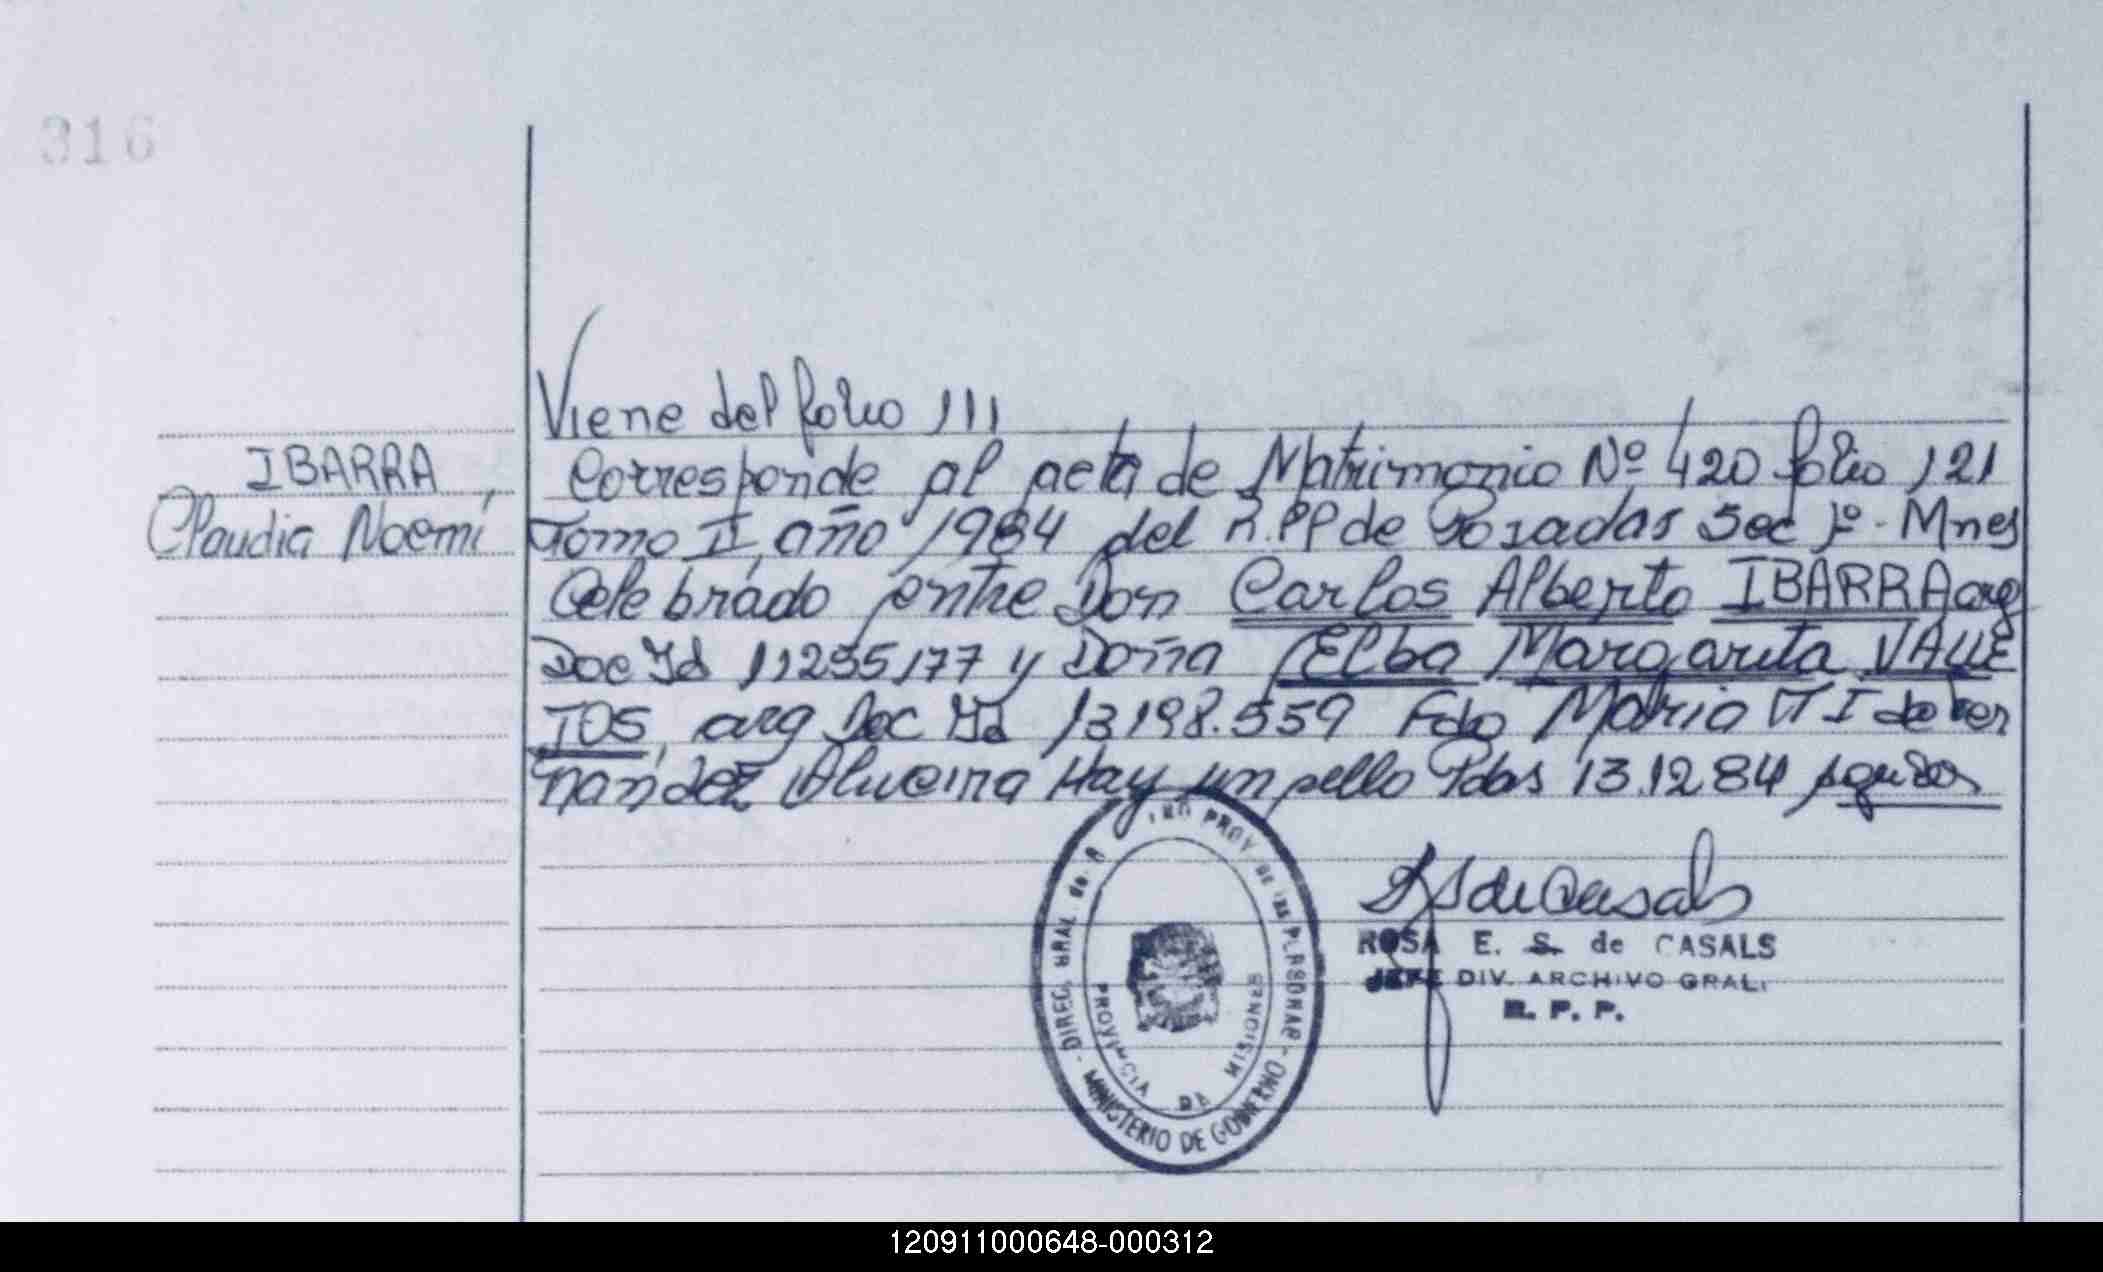 316
Viene del folio 111
IBARRA
Claudia Noemí
Corresponde al acta de Matrimonio Nº 420 folio 121
Tomo II, año 1984 del R.PP de Posadas Sec 1º - Mnes
Celebrado entre Don Carlos Alberto IBARRA arg
Doc Id 11255177 y Doña Elba Margarita VALLE
JOS, arg Doc Id 13198.559 Fdo Mario
nandez Hay un sello Pdas 13.12.84
ROSA E. S. de CASALS
JEFE DIV. ARCHIVO GRAL.
R. P. P.
DIREC. GRAL. PROV. DE LAS PERSONAS - MINISTERIO DE GOBIERNO -
PROVINCIA DE MISIONES
120911000648-000312